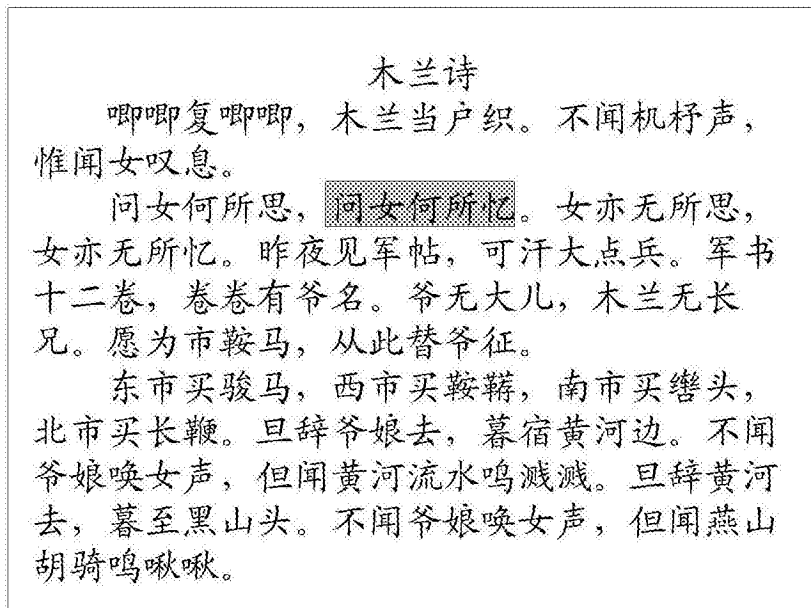 木兰诗
唧唧复唧唧，木兰当户织。不闻机杼声，
惟闻女叹息。
问女何所思，问女何所忆。女亦无所思，
女亦无所忆。昨夜见军帖，可汗大点兵。军书
十二卷，卷卷有爷名。爷无大儿，木兰无长
兄。愿为市鞍马，从此替爷征。
东市买骏马，西市买鞍鞯，南市买辔头，
北市买长鞭。旦辞爷娘去，暮宿黄河边。不闻
爷娘唤女声，但闻黄河流水鸣溅溅。旦辞黄河
去，暮至黑山头。不闻爷娘唤女声，但闻燕山
胡骑鸣啾啾。